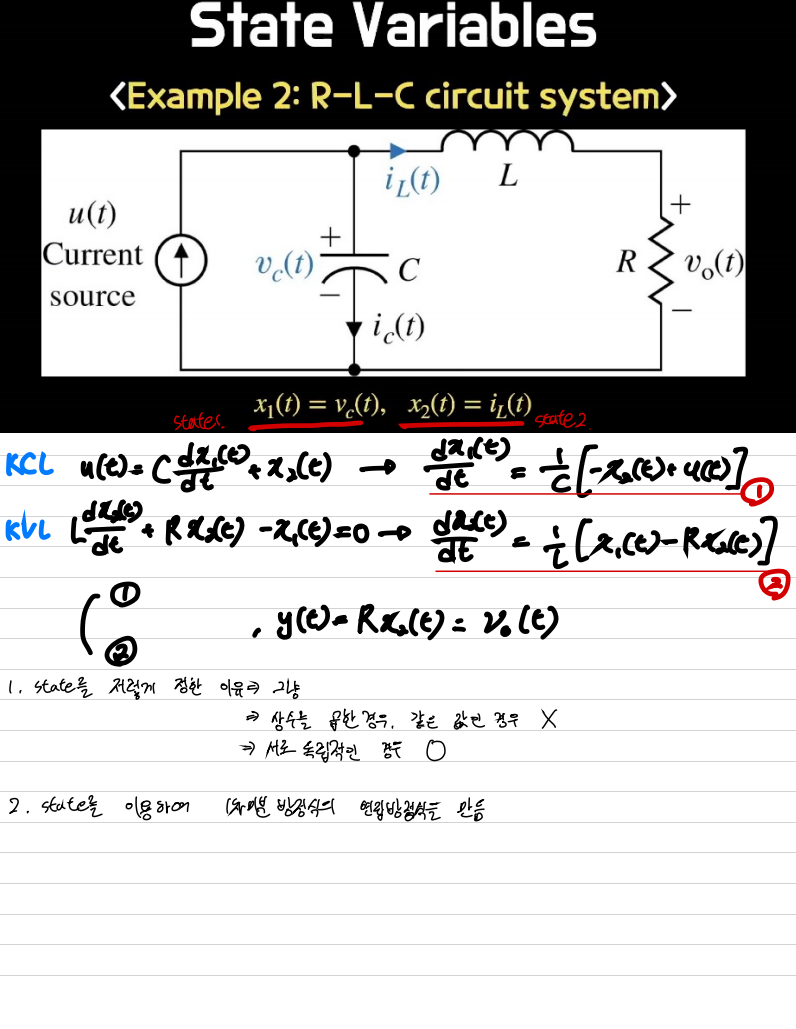 State Variables
<Example 2: R-L-C circuit system>
i_L(t) L
u(t)
Current
source
+
v_c(t) C
−
i_c(t)
+
R v_o(t)
−
x_1(t) = v_c(t), x_2(t) = i_L(t)
state1. state2.
KCL u(t) = C dx_1(t)/dt + x_2(t) → dx_1(t)/dt = 1/C [-x_2(t) + u(t)] ①
KVL L dx_2(t)/dt + Rx_2(t) - x_1(t) = 0 → dx_2(t)/dt = 1/L [x_1(t) - Rx_2(t)] ②
①
② , y(t) = Rx_2(t) = v_o(t)
1. state를 저렇게 정한 이유 ⇒ 그냥
⇒ 상수를 곱한 경우, 같은 값인 경우 X
⇒ 서로 독립적인 경우 O
2. state를 이용하여 1차 미분 방정식의 연립방정식을 만듦